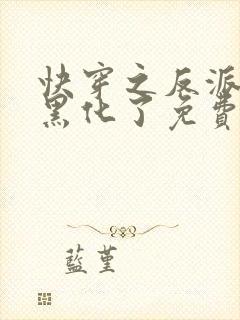 快穿之反派
黑化了免費
藍堇